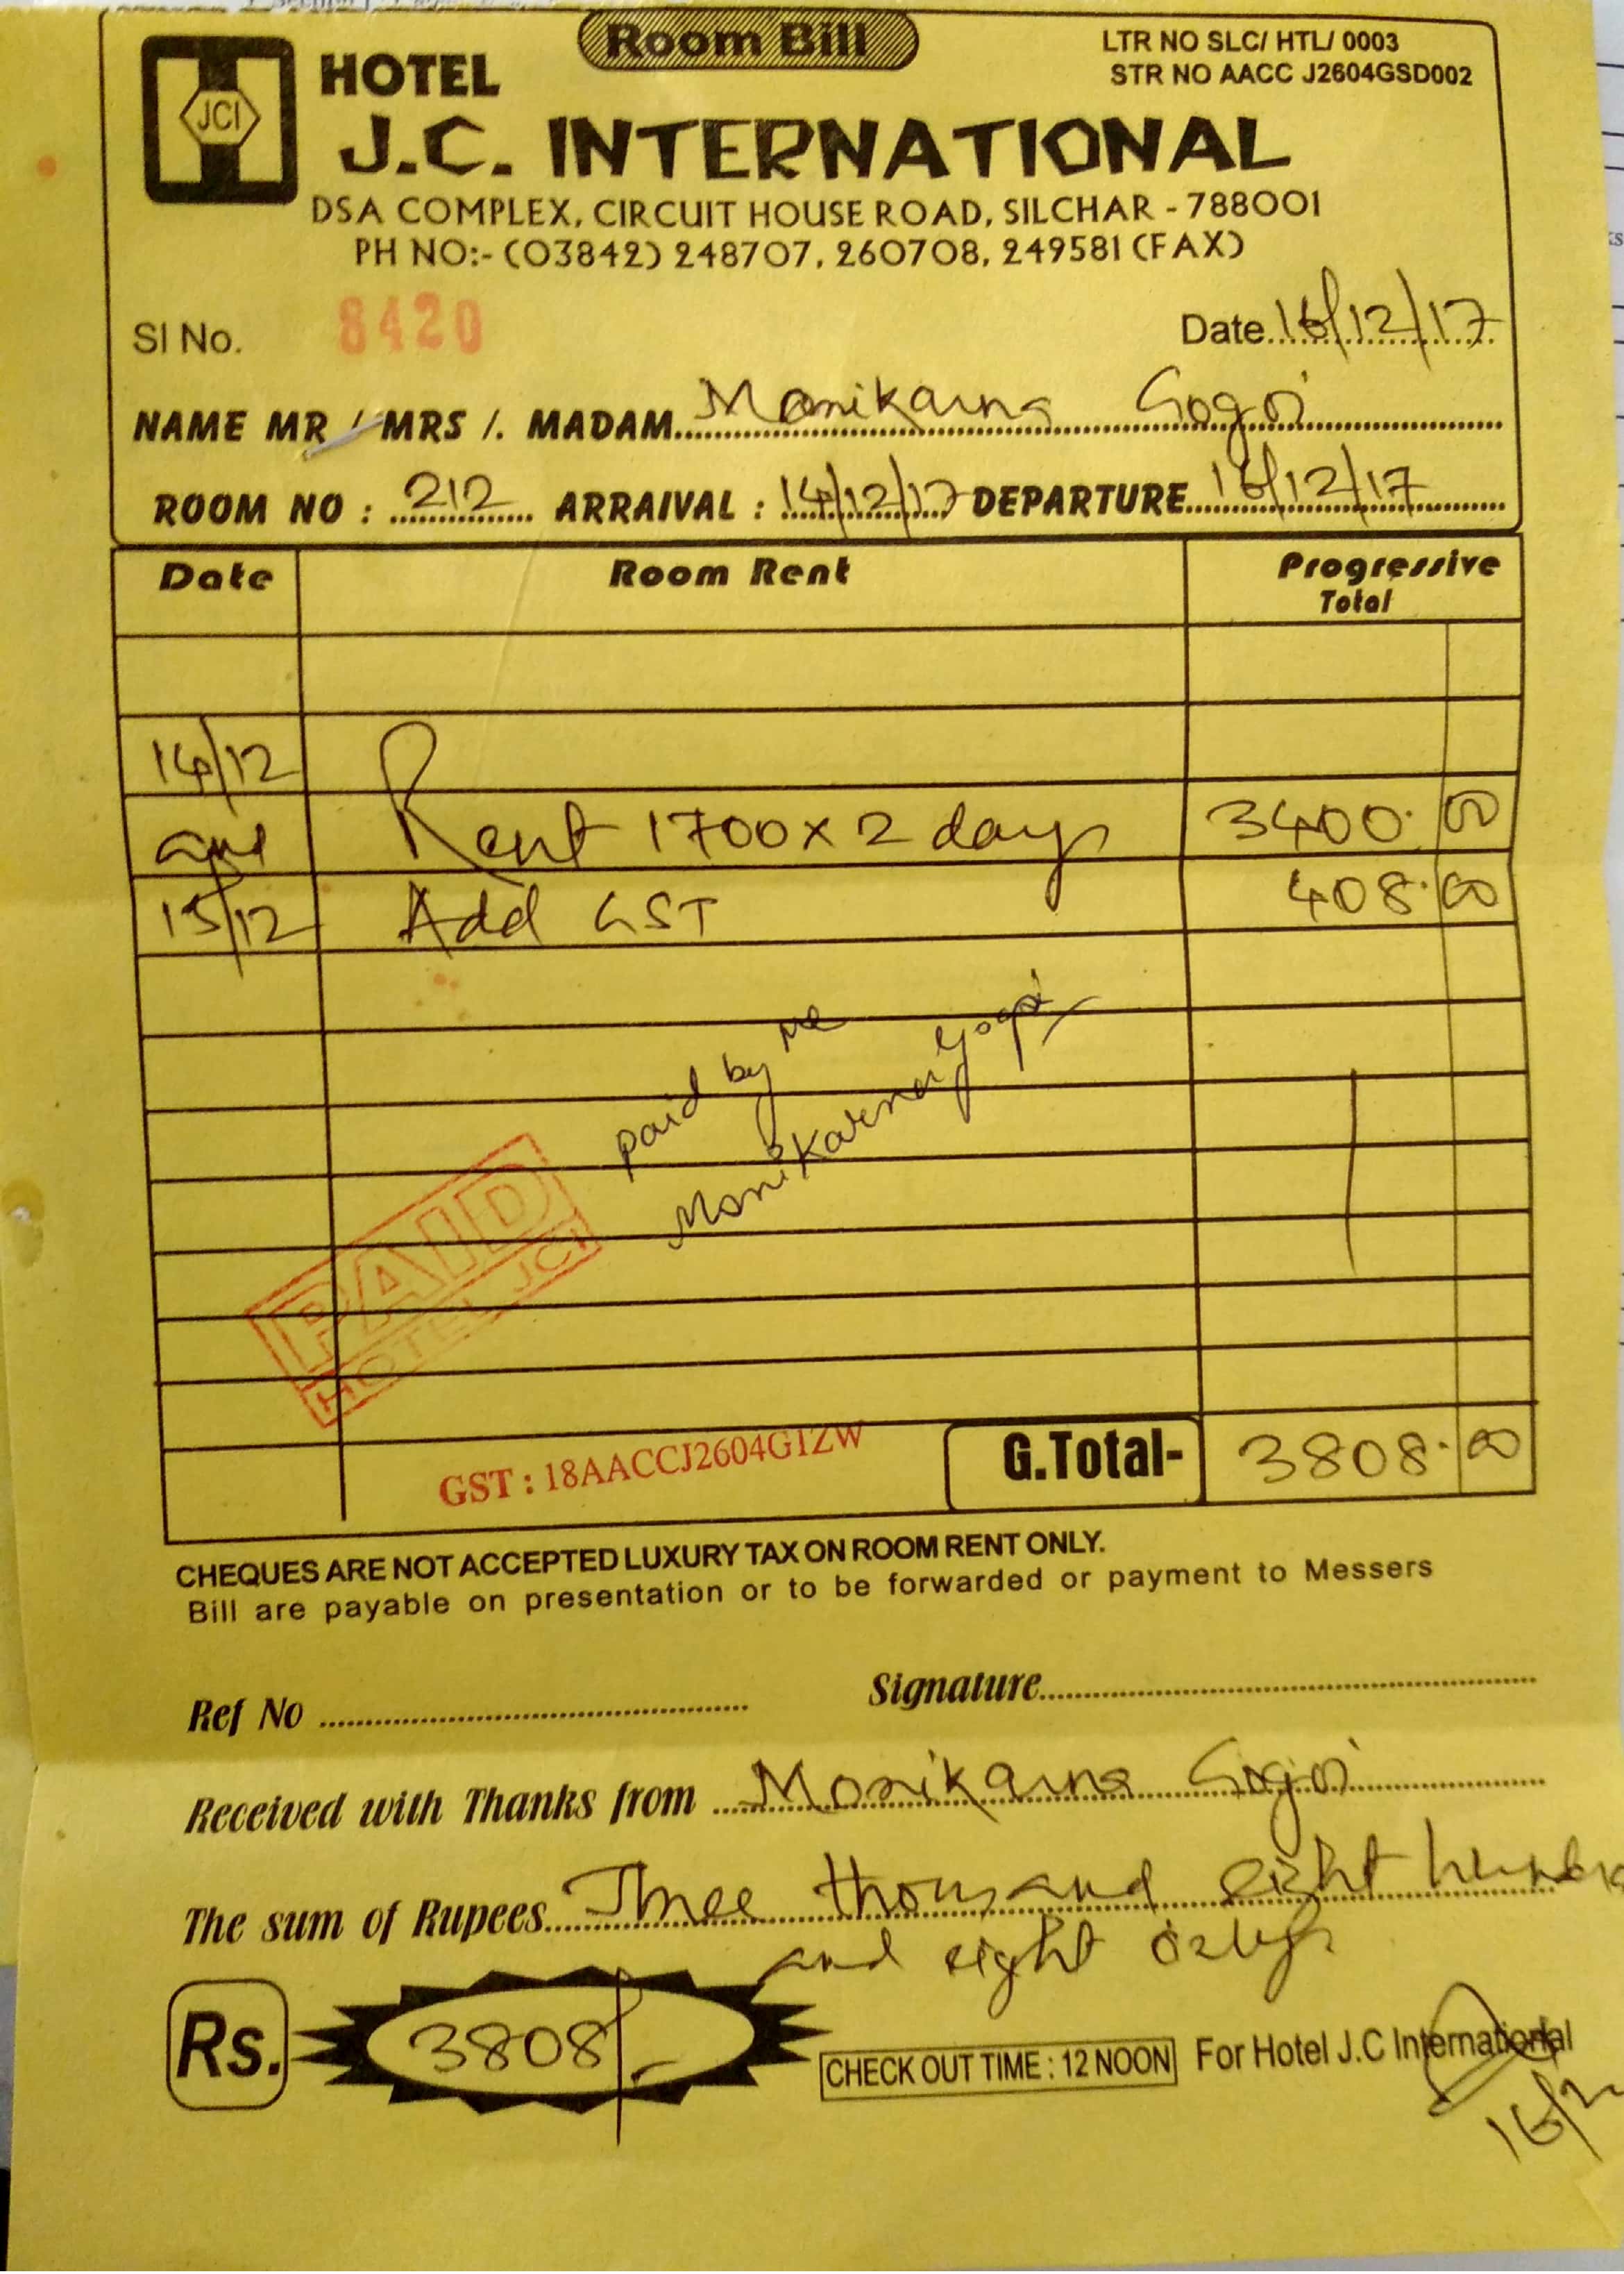 Room Bill
LTR NO SLC/ HTL/ 0003
STR NO AACC J2604GSD002
JCI
HOTEL
J.C. INTERNATIONAL
DSA COMPLEX, CIRCUIT HOUSE ROAD, SILCHAR - 788001
PH NO:- (03842) 248707, 260708, 249581 (FAX)
Sl No. 8420 Date 16/12/17
NAME MR / MRS /. MADAM Monikarna Gogoi
ROOM NO : 212 ARRAIVAL : 14/12/17 DEPARTURE 16/12/17
Date Room Rent Progressive Total
14/12
and Rent 1700 x 2 days 3400.00
15/12 Add GST 408.00
paid by me
Monikarna Gogoi
PAID
HOTEL JCI
GST : 18AACCJ2604G1ZW
G.Total- 3808.00
CHEQUES ARE NOT ACCEPTED LUXURY TAX ON ROOM RENT ONLY.
Bill are payable on presentation or to be forwarded or payment to Messers
Ref No Signature
Received with Thanks from Monikarna Gogoi
The sum of Rupees Three thousand eight
and eight only
Rs. 3808/-
CHECK OUT TIME : 12 NOON For Hotel J.C International